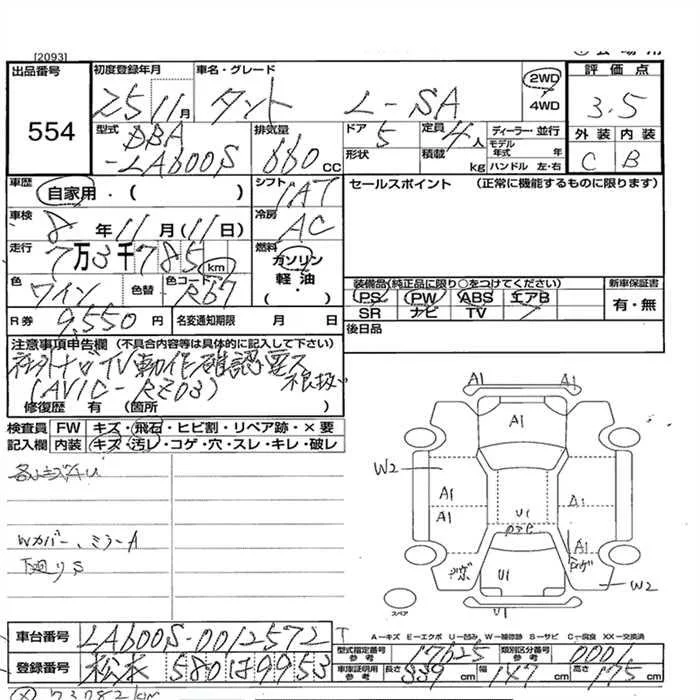 [2093]
出品番号 初度登録年月 車名・グレード 2WD 評価点
554 25 11月 タント L-SA 4WD 3.5
型式 排気量 ドア 定員 ディーラー・並行 外装 内装
DBA 5 4人 モデル年式 年 C B
-LA600S 660 cc 形状 積載 kg ハンドル 左・右
車歴 自家用・( ) シフト IAT セールスポイント (正常に機能するものに限ります)
車検 8年11月(11日) 冷房 AC
走行 7万3千785 km 燃料 ガソリン
色 ワイン 色替 色コード R67 軽油 (・) 装備品(純正品に限り○をつけてください) 新車保証書
PS PW ABS エアB 有・無
SR ナビ TV
R券 9,550円 名変通知期限 月 日 後日品
注意事項申告欄 (不具合内容等は具体的に記入して下さい)
社外ナビTV動作確認要ス
(AVIC-RZ03)
修復歴 有 (箇所 )
検査員 FW キズ・飛石・ヒビ割・リペア跡・×要
記入欄 内装 キズ・汚レ・コゲ・穴・スレ・キレ・破レ
Wカバー、ミラーA
下廻りS
A1 A1
A1
W2 A1 A1
A1 U1 A1
U1 W2
U1
スペア
A-キズ E-エクボ U-凹み W-補修跡 S-サビ C-腐食 XX-交換済
車台番号 LA600S-0012572 型式指定番号 参考 17625 類別区分番号 参考 0001
登録番号 松本 580 ほ 9953 車庫証明用 参考 長さ 339cm 幅 147cm 高さ 175cm
73782km